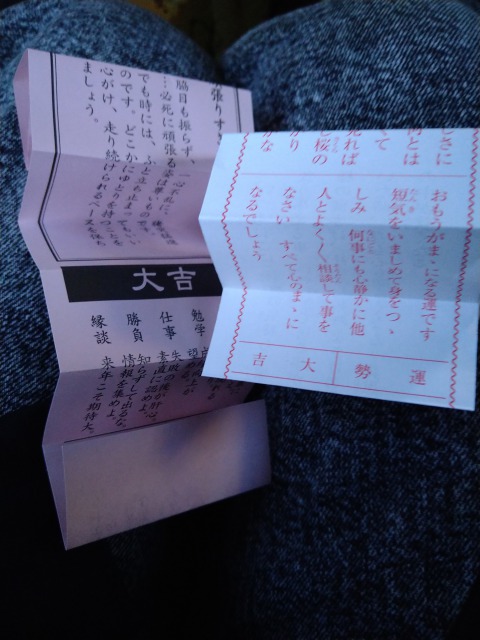 張りす
脇目も振らず、一心不乱に
…必死に頑張る姿は
でも時には、ふと立ち止まってもいい
のです。どこかにゆとりを持つことを
心がけ、走り続けられるペースを保ち
ましょう。
大吉
勉学
仕事
失敗の後が肝心
素直に
勝負
知らずして出るな。
情報を集めよ。
縁談
来年こそ期待大。
じさに
何とは
くて
見れば
し桜の
かり
かな
おもうがまゝになる運です
短気をいましめて身をつゝ
しみ 何事にも心静かに他
人とよくよく相談して事を
なさい すべてそのまゝに
なるでしょう
運勢
大吉